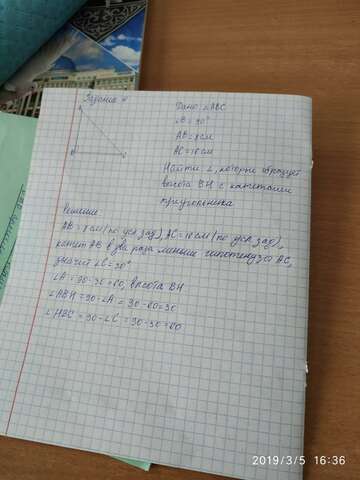 Задание 4
Дано: ∠ABC
∠B = 90°
AB = 8 см
AC = 16 см
Найти ∠, которые образует
высота BH с катетами
треугольника
A
B
C
Решение
AB = 8 см (по усл. зад), AC = 16 см (по усл. зад),
катет AB в два раза меньше гипотенузы AC,
значит ∠C = 30°
∠A = 90-30=60, высота BH
∠ABH = 90-∠A = 90-60=30
∠HBC = 90-∠C = 90-30=60
2019/3/5 16:36